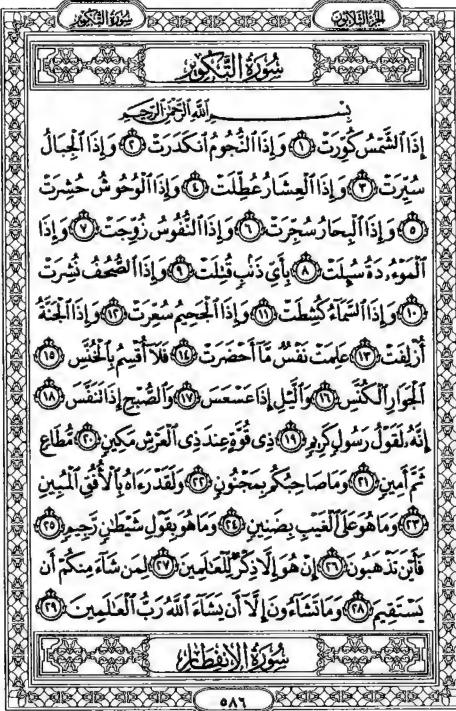 الجُزءُ الثَّلَاثُونَ سُورَةُ التَّكْوِيرِ
سُورَةُ التَّكْوِيرِ
بِسْمِ ٱللَّهِ ٱلرَّحْمَٰنِ ٱلرَّحِيمِ
إِذَا ٱلشَّمْسُ كُوِّرَتْ ١ وَإِذَا ٱلنُّجُومُ ٱنكَدَرَتْ ٢ وَإِذَا ٱلْجِبَالُ
سُيِّرَتْ ٣ وَإِذَا ٱلْعِشَارُ عُطِّلَتْ ٤ وَإِذَا ٱلْوُحُوشُ حُشِرَتْ
٥ وَإِذَا ٱلْبِحَارُ سُجِّرَتْ ٦ وَإِذَا ٱلنُّفُوسُ زُوِّجَتْ ٧ وَإِذَا
ٱلْمَوْءُۥدَةُ سُئِلَتْ ٨ بِأَيِّ ذَنۢبٍ قُتِلَتْ ٩ وَإِذَا ٱلصُّحُفُ نُشِرَتْ
١٠ وَإِذَا ٱلسَّمَآءُ كُشِطَتْ ١١ وَإِذَا ٱلْجَحِيمُ سُعِّرَتْ ١٢ وَإِذَا ٱلْجَنَّةُ
أُزْلِفَتْ ١٣ عَلِمَتْ نَفْسٌ مَّآ أَحْضَرَتْ ١٤ فَلَآ أُقْسِمُ بِٱلْخُنَّسِ ١٥
ٱلْجَوَارِ ٱلْكُنَّسِ ١٦ وَٱلَّيْلِ إِذَا عَسْعَسَ ١٧ وَٱلصُّبْحِ إِذَا تَنَفَّسَ ١٨
إِنَّهُۥ لَقَوْلُ رَسُولٍ كَرِيمٍ ١٩ ذِى قُوَّةٍ عِندَ ذِى ٱلْعَرْشِ مَكِينٍ ٢٠ مُّطَاعٍ
ثَمَّ أَمِينٍ ٢١ وَمَا صَاحِبُكُم بِمَجْنُونٍ ٢٢ وَلَقَدْ رَءَاهُ بِٱلْأُفُقِ ٱلْمُبِينِ
٢٣ وَمَا هُوَ عَلَى ٱلْغَيْبِ بِضَنِينٍ ٢٤ وَمَا هُوَ بِقَوْلِ شَيْطَٰنٍ رَّجِيمٍ ٢٥
فَأَيْنَ تَذْهَبُونَ ٢٦ إِنْ هُوَ إِلَّا ذِكْرٌ لِّلْعَٰلَمِينَ ٢٧ لِمَن شَآءَ مِنكُمْ أَن
يَسْتَقِيمَ ٢٨ وَمَا تَشَآءُونَ إِلَّآ أَن يَشَآءَ ٱللَّهُ رَبُّ ٱلْعَٰلَمِينَ ٢٩
سُورَةُ الِانْفِطَارِ
٥٨٦